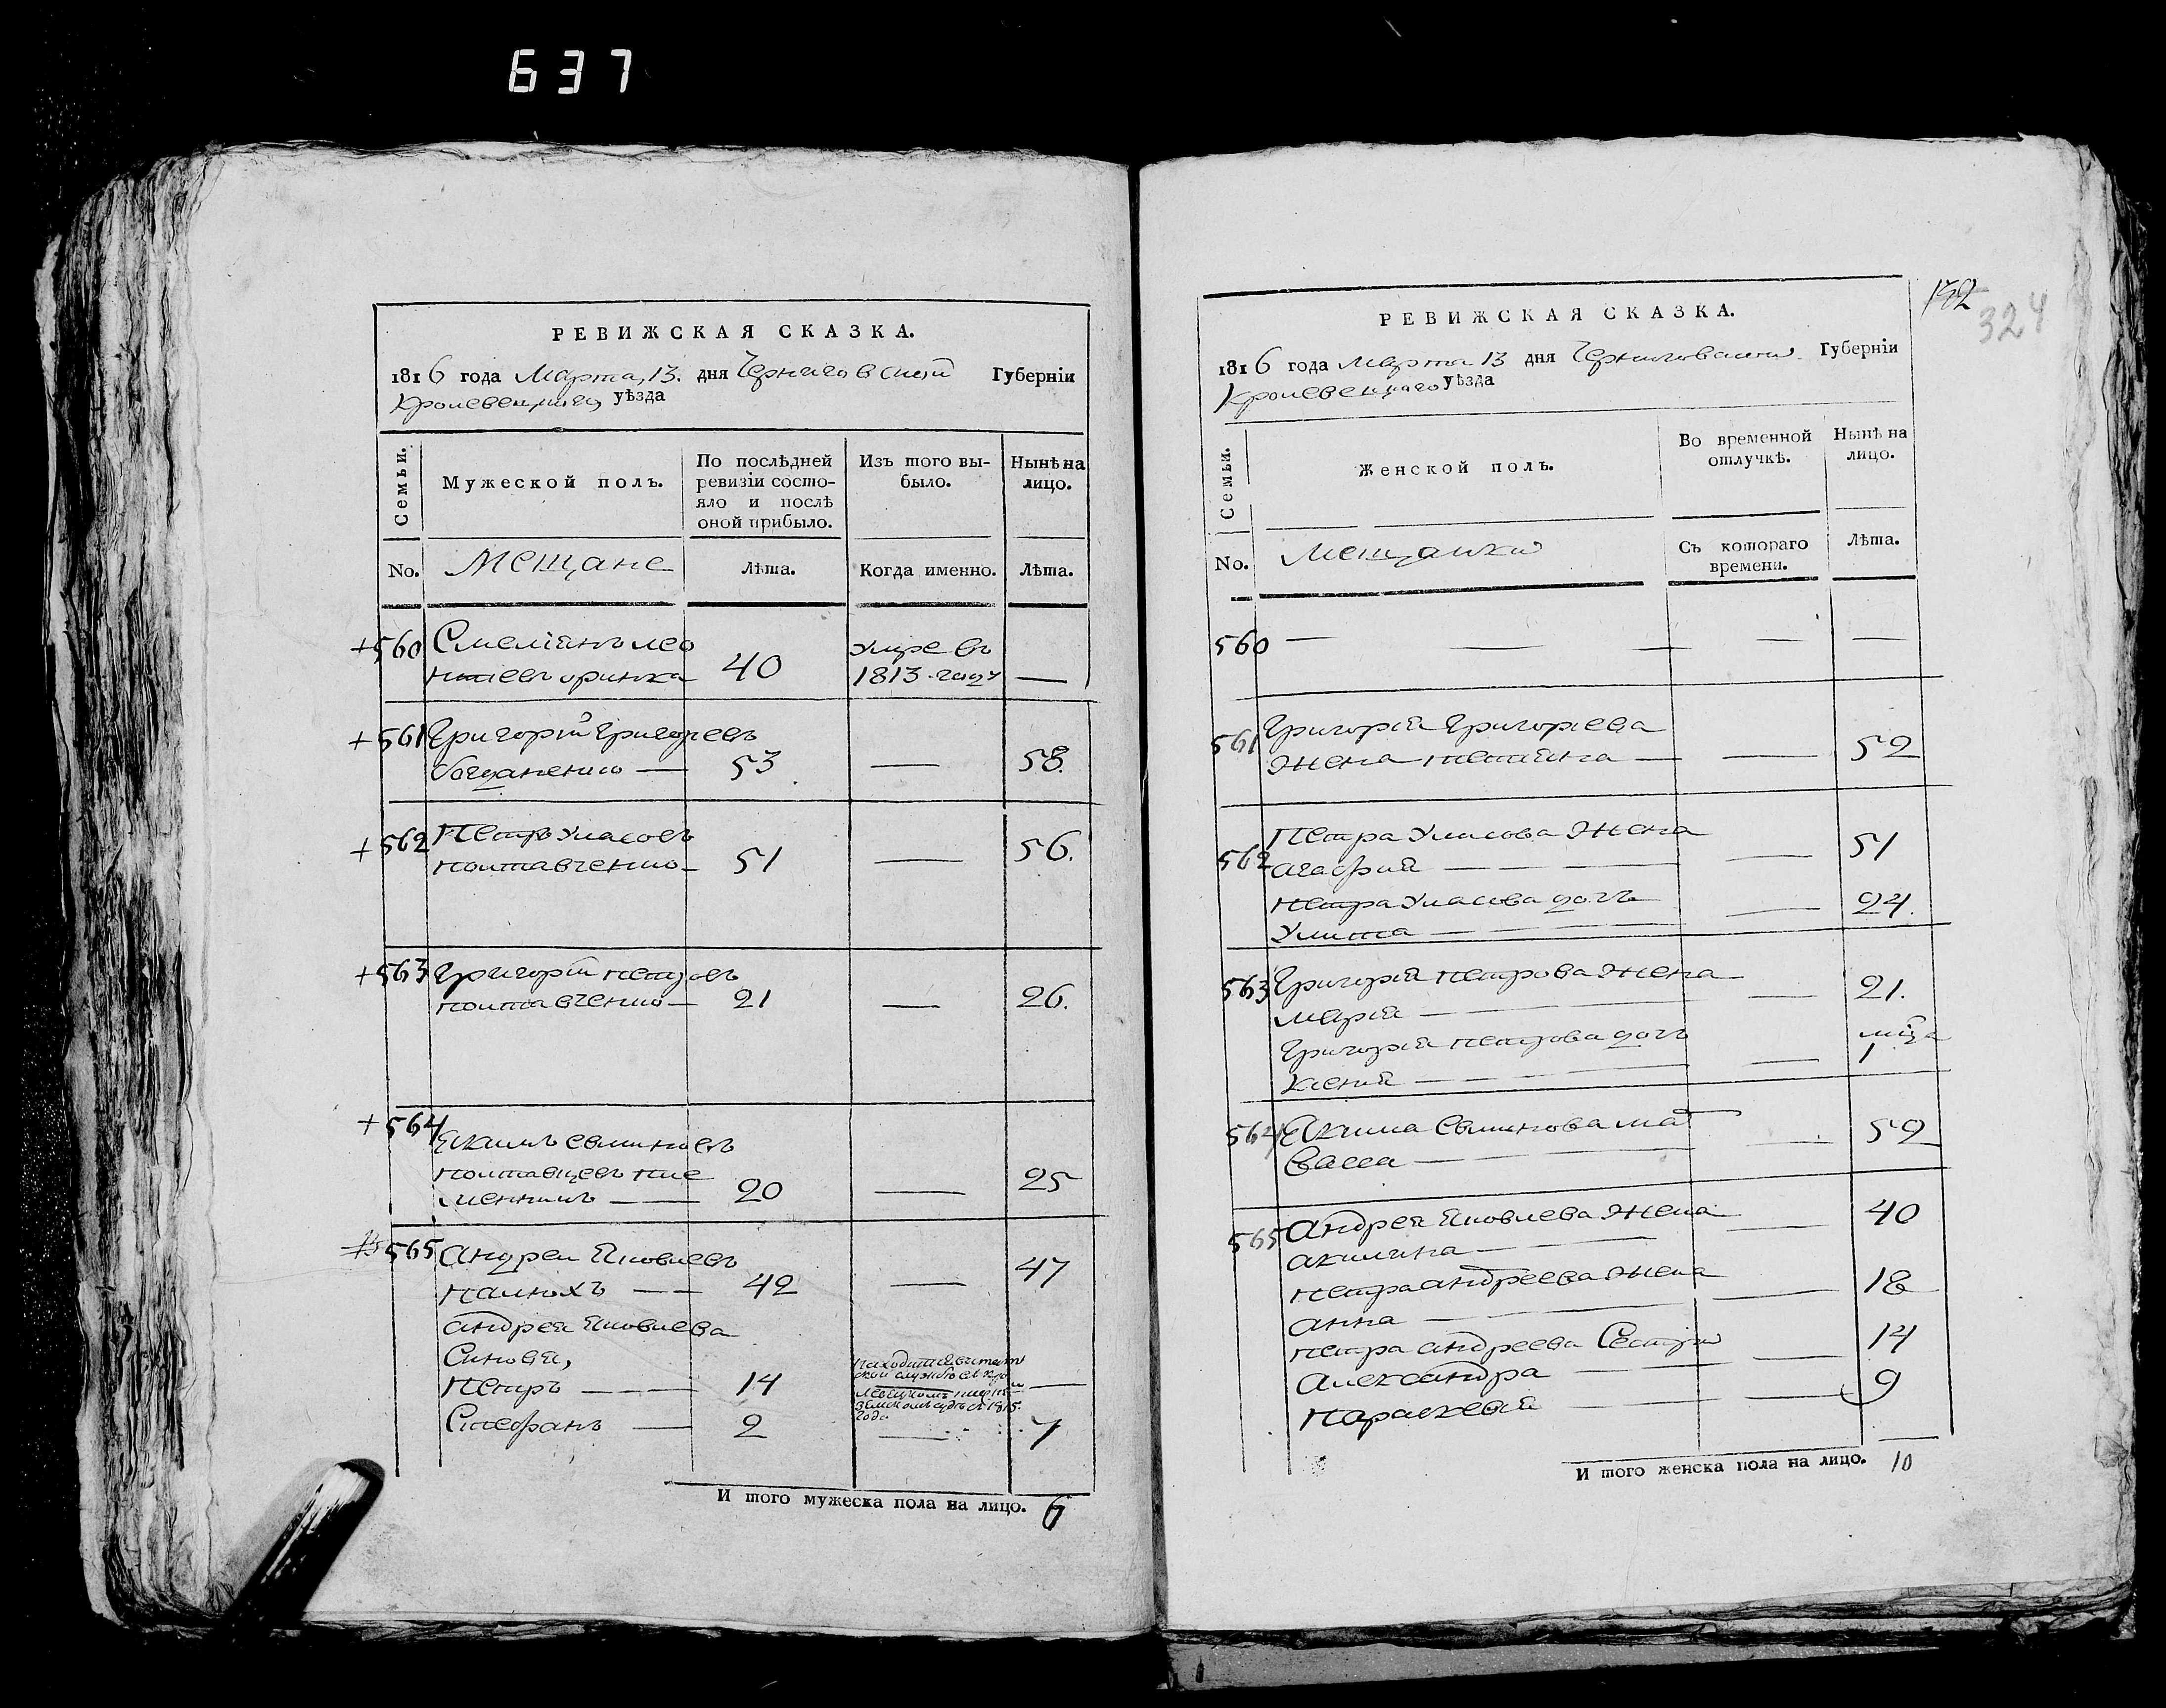 637
РЕВИЖСКАЯ СКАЗКА.
1816 года Марта, 13. дня Черниговской Губерніи
Кролевецкаго уѣзда
Семьи.
Мужеской полъ.
По послѣдней ревизіи состо-
яло и послѣ оной прибыло.
Изъ того вы-
было.
Нынѣ на лицо.
No.
Мещане
Лѣта.
Когда именно.
Лѣта.
+560 Емеліянъ Лео
40
умре въ
1813 году —
+561 Григорій Григорьевъ
Богданенко — 53 — 58.
+562 Петръ Уласовъ
полтавченко — 51 — 56.
+563 Григорій петровъ
полтавченко — 21 — 26.
+564
Якимъ
полтавцевъ пле
менникъ — 20 — 25
565 Андрей Яковлевъ
42 — 47
Андрея Яковлева
Синовя,
Петръ — 14
находится въ штат
ской службе въ кро
левецкомъ нижн
земскомъ суде съ 1815.
года
—
Стефанъ — 2 — 7
И того мужеска пола на лицо. 6
РЕВИЖСКАЯ СКАЗКА.
324
1816 года Марта 13 дня Черниговской Губерніи
Кролевецкаго уѣзда
Семьи.
Женской полъ.
Во временной
отлучкѣ.
Нынѣ на
лицо.
No.
Мещанки
Съ котораго
времени.
Лѣта.
560 — — — — —
561 Григорія Григоріева
жена — — 52
562 Петра Уласова жена
агафия — — 51
петра Уласова дочъ
Улита — — 24.
563 Григорія петрова жена
марія — — 21.
Григорія петрова дочъ
ксенія — — 1
564 Якима мат
Васса — — 52
565 Андрея Яковлева жена
акилина — — 40
петра андреева жена
анна — — 18
петра андреева Сестри
Александра — — 14
параскевия — — 9
И того женска пола на лицо. 10